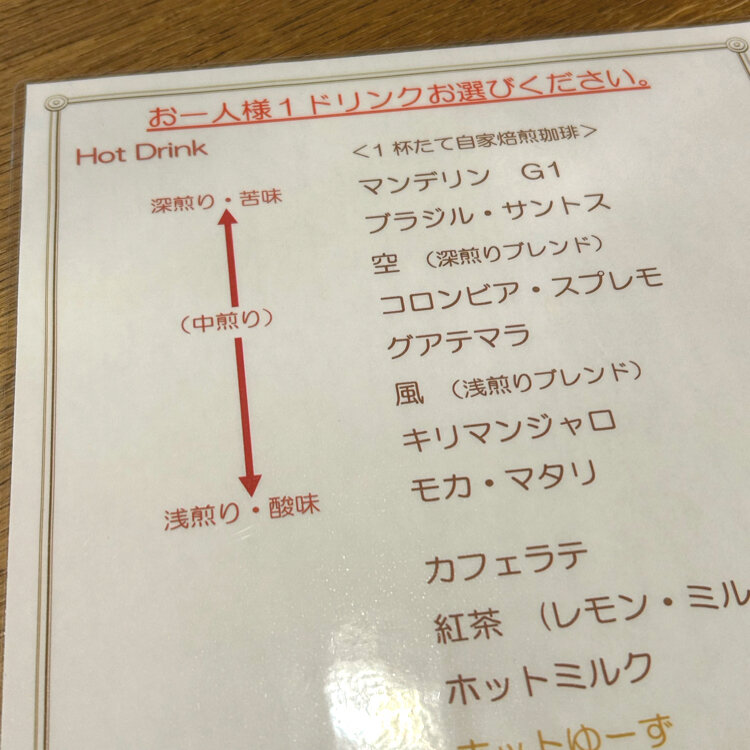 お一人様１ドリンクお選びください。
Hot Drink
＜１杯たて自家焙煎珈琲＞
深煎り・苦味
マンデリン　G1
ブラジル・サントス
空　（深煎りブレンド）
コロンビア・スプレモ
（中煎り）
グアテマラ
風　（浅煎りブレンド）
キリマンジャロ
モカ・マタリ
浅煎り・酸味
カフェラテ
紅茶　（レモン・ミル
ホットミルク
ホットゆーず